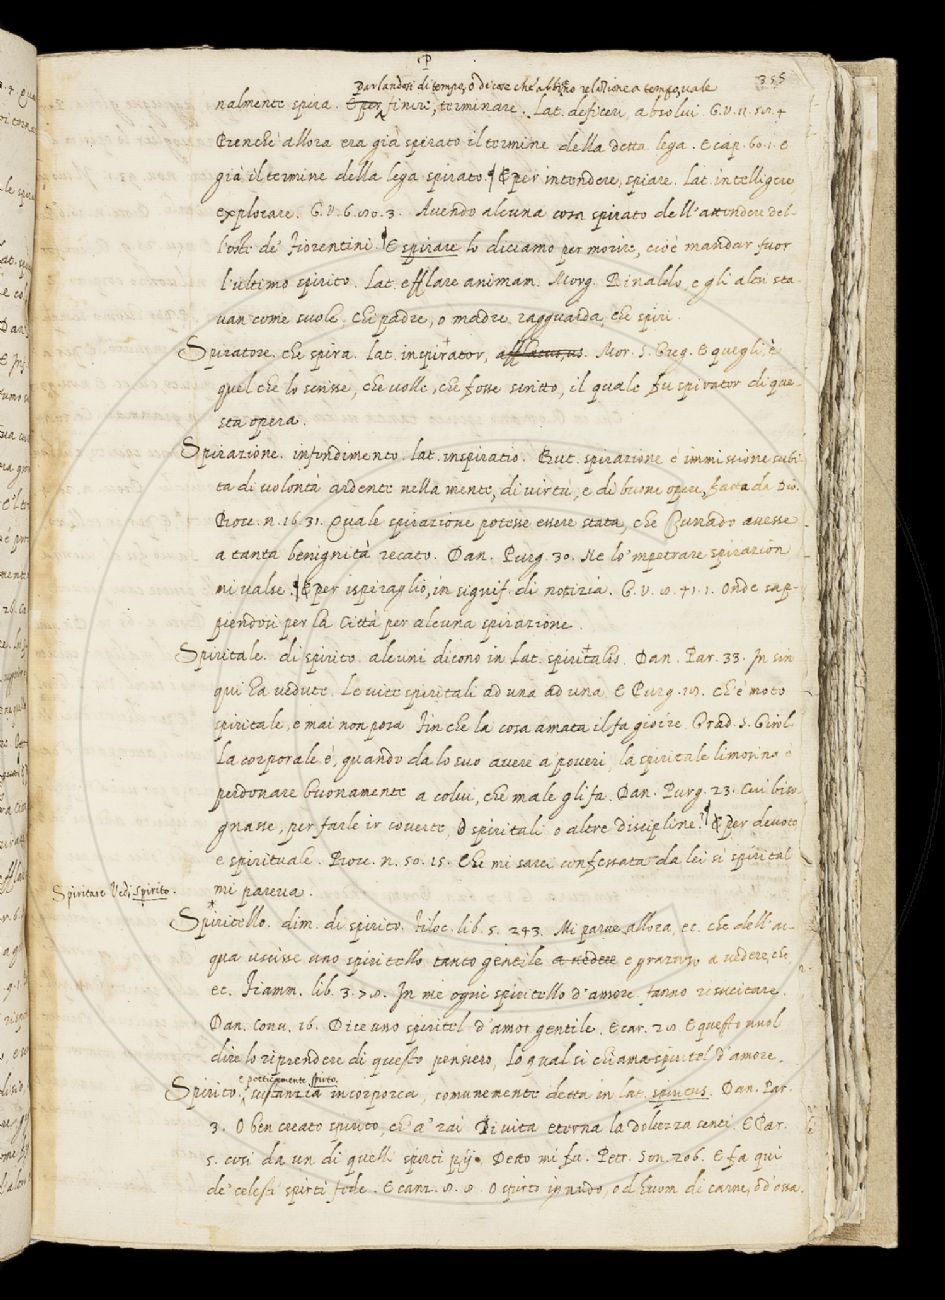 P
355
parlandosi di tempo, o di cose ch'abbino relazione a tempo, vale
nalmente spira. E per finire, terminare. Lat. deficere, absolui. G.V. 11.
Perché allora era già spirato il termine della detta lega. E cap. 60. 1. e
già il termine della lega spirato. E per intendere, spiare. Lat. intelligere
explorare. G.V. 6. 80. 3. Avendo alcuna cosa spirato dell'attendere del-
l'oste de' Fiorentini. E spirare lo diciamo per morire, cioè mandar fuor
l'ultimo spirito. Lat. efflare animam. Morg. Rinaldo, e gli altri sta-
van come suole. Chi padre, o madre ragguarda, che spiri.
Spiratore. che spira. Lat. inspirator, afflatur, us. Mor. S. Greg. E quegli, è
quel che lo scrisse, che volle, che fosse scritto, il quale fu spirator di que-
sta opera.
Spirazione. infondimento. lat. inspiratio. But. spirazione è immissione subi-
ta di volontà ardente nella mente, di virtù, e di buone opere, fatta da Dio.
Bocc. n. 16. 31. Quale spirazione potesse essere stata, che Currado avesse
a tanta benignità recato. Dan. Purg. 30. Ne lo 'mpetrare spirazion
mi valse. E per ispiraglio, in signif. di notizia. G. V. 8. 41. 1. Onde sap-
piendosi per la Città per alcuna spirazione.
Spiritale. di spirito. alcuni dicono in Lat. spiritalis. Dan. Par. 33. In sin
qui ha vedute. Le vite spiritali ad una ad una. E Purg. 18. Ch'è moto
spiritale, e mai non posa Finche la cosa amata il fa gioire. Grad. S. Girol.
La corporale è, quando dà lo suo avere a poveri, la spiritale limosina è
perdonare buonamente a colui, che male gli fa. Dan. Purg. 23. Cui biso-
gnasse, per farle ir coverte, O spiritali o altre discipline. E per devoto
e spirituale. Bocc. n. 50. 15. Che mi sarei confessata da lei sì spirital
Spiritare Vedi spirito.
mi pareva.
Spiritello. dim. di spirito. Filoc. lib. 5. 243. Mi parve allora, ec. che dell'ac-
qua uscisse uno spiritello tanto gentile a vedere e grazioso a vedere, che
ec. Fiamm. lib. 3. 78. In me ogni spiritello d'amore fanno risuscitare.
Dan. Conv. 16. Dice uno spiritel d'amor gentile. E car. 28. E questo vuol
dire lo riprendere di questo pensiero, lo qual si chiama spiritel d'amore.
e poeticamente spirto.
Spirito. sustanzia incorporea, comunemente detta in lat. spiritus. Dan. Par.
3. O ben creato spirito, ch'a' rai Di vita eterna la dolcezza senti. E Par.
5. così da un di quelli spirti pij Detto mi fu. Petr. Son. 206. E fa qui
de' celesti spirti fede. E canz. 8. 8. O spirto ignudo, od huom di carne, ed ossa.